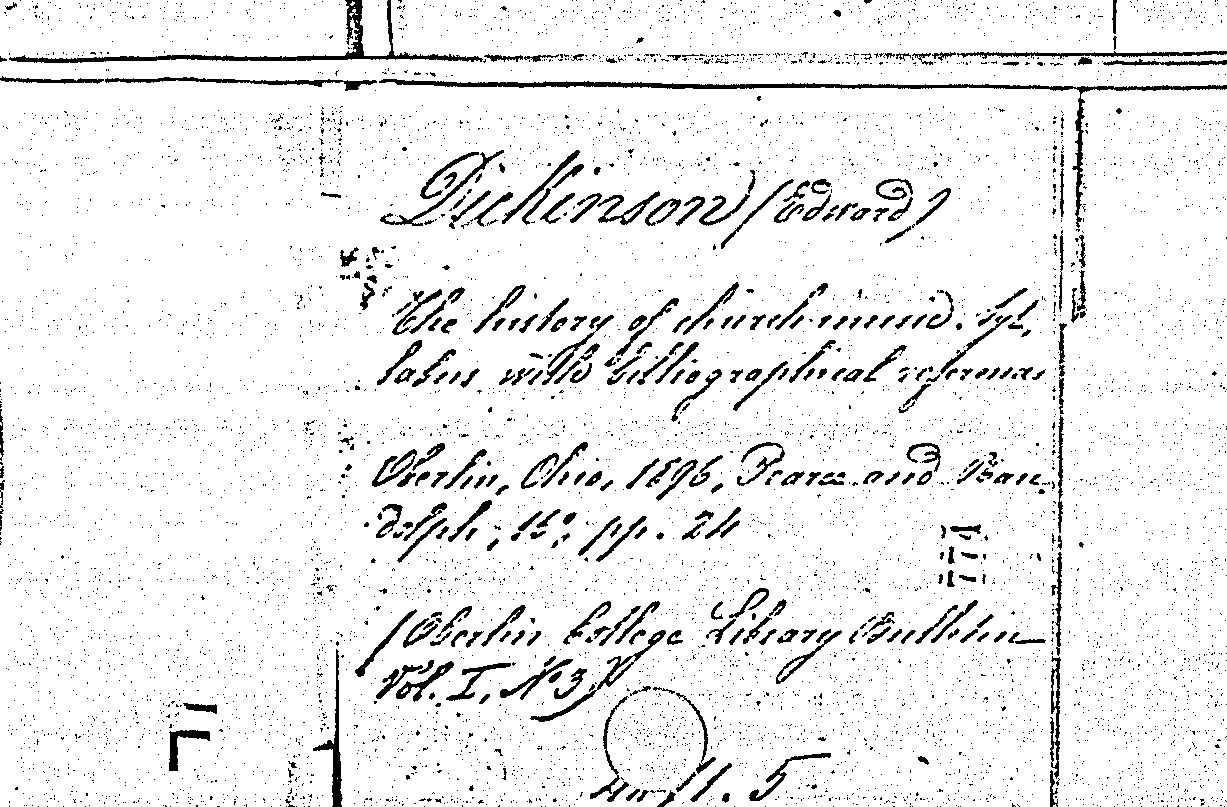 Dickinson (Edward)
The history of church music. Syl-
labus with bibliographical references
Oberlin, Ohio, 1896, Pearce and Ran-
dolph, 15°, pp. 24
(Oberlin College Library Bulletin
Vol. I, N° 3)
11. 5